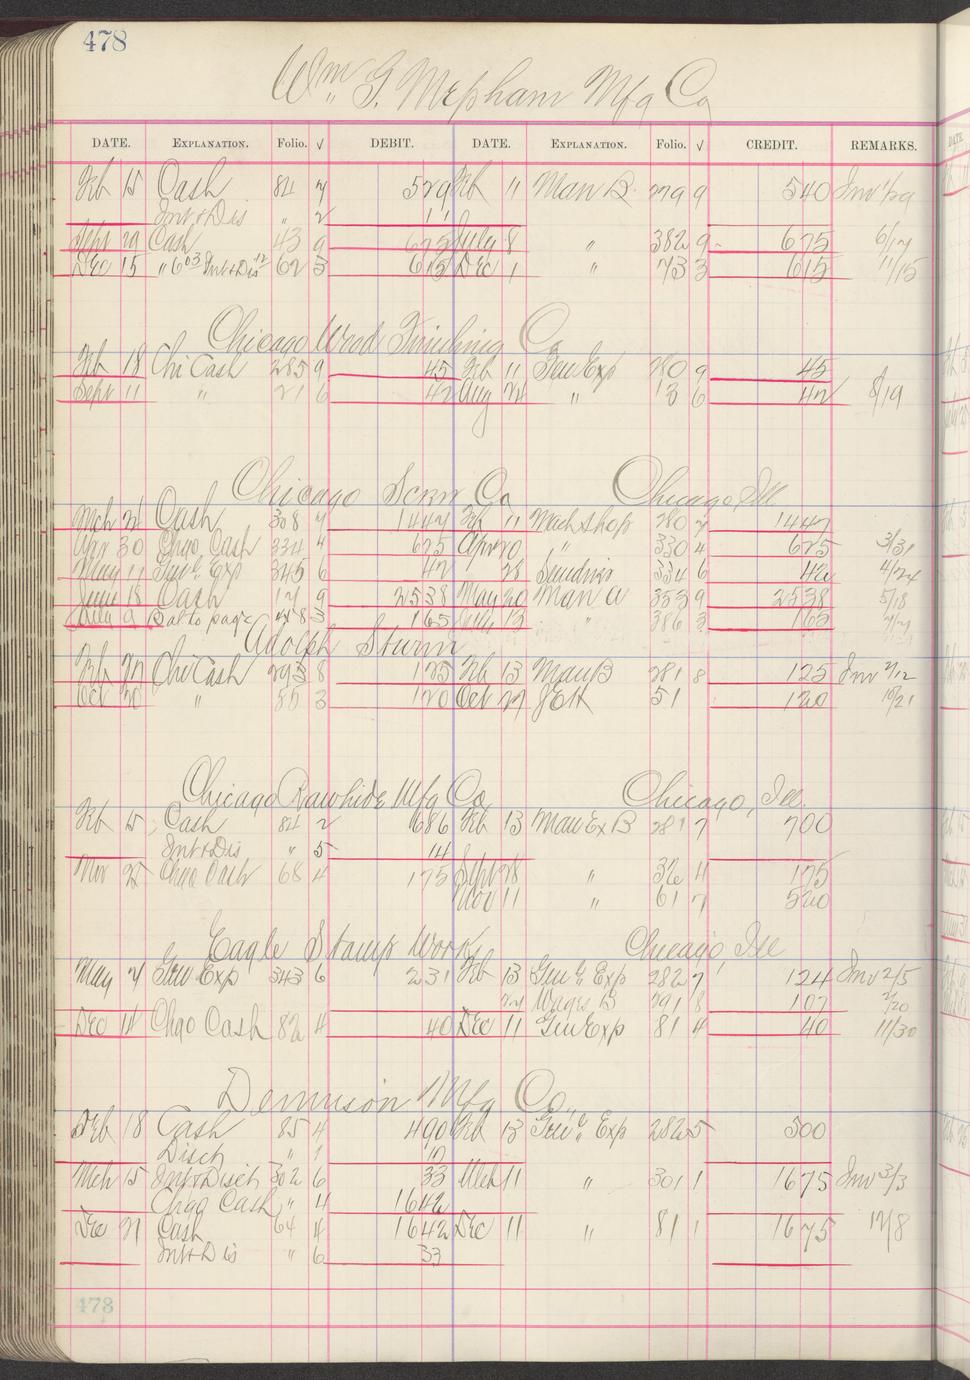 478
Wm G. Mepham Mfg Co
DATE. EXPLANATION. Folio. √ DEBIT. DATE. EXPLANATION. Folio. √ CREDIT. REMARKS.
Feb 15 Cash 84 7 529 Feb 11 Man B. 279 9 540 Inv 1/29
Int+Dis " 2 11
Sept 29 Cash 43 9 675 July 8 " 382 9 675 6/17
Dec 15 " 603 Int+Dis 12 62 3 615 Dec 1 " 73 3 615 11/15
Chicago Wood Finishing Co
Feb 18 Chi Cash 285 9 45 Feb 11 Gen Exp 280 9 45
Sept 11 " 21 6 42 Aug 24 " 13 6 42 8/19
Chicago Screw Co Chicago, Ill
Mch 21 Cash 308 7 1447 Feb 11 Mach shop 280 7 1447
Apr 30 Chgo Cash 334 4 625 Apr 20 " 330 4 625 3/31
May 11 Genl Exp 345 6 42 28 Sundries 334 6 42 4/24
June 18 Cash 17 9 2538 May 20 Man A 353 9 2538 5/18
July 9 Bal to page 478 3 165 July 13 " 386 3 165 7/7
Adolph Sturm
Feb 27 Chi Cash 293 8 125 Feb 13 Man B 281 8 125 Inv 2/12
Oct 30 " 85 3 120 Oct 27 51 120 10/21
Chicago Rawhide Mfg Co Chicago, Ill.
Feb 15 Cash 84 2 686 Feb 13 Man Ex B 281 7 700
Int+Dis " 5 14
Nov 25 Chgo Cash 68 4 175 Sept 28 " 32 4 175
Nov 11 " 61 7 520
Eagle Stamp Works Chicago, Ill
May 7 Gen Exp 343 6 231 Feb 13 Genl Exp 282 7 124 Inv 2/5
24 Wages B 291 8 107 2/20
Dec 14 Chgo Cash 82 4 40 Dec 11 Gen Exp 81 4 40 11/30
Dennison Mfg Co.
Feb 18 Cash 85 4 490 Feb 13 Genl Exp 282 5 500
Disct " 1 10
Mch 15 Int+Disct 302 6 33 Mch 11 " 301 1 1675 Inv 3/3
Chgo Cash " 4 1642
Dec 21 Cash 64 4 1642 Dec 11 " 81 1 1675 12/8
Int+Dis " 6 33
473